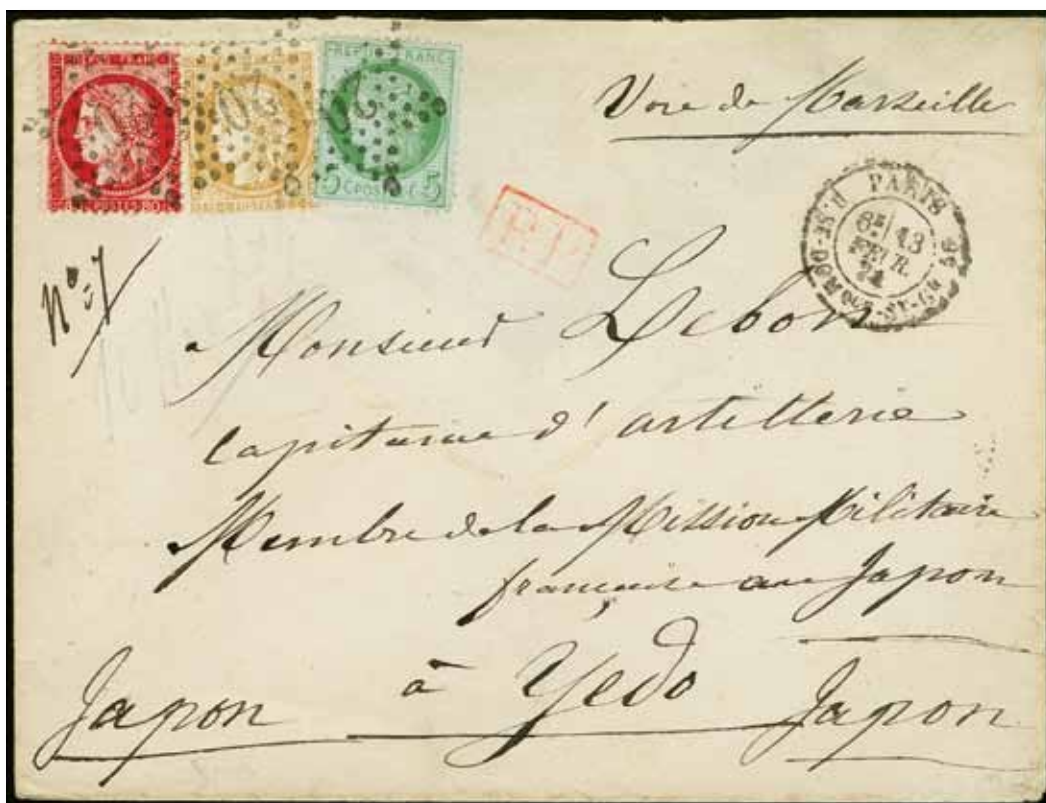 REPUB FRANC
5 C POSTES 5
20
Voie de Marseille
PARIS
13
FEVR.
74
R. ST-DOMque-ST-Gn 56
P.P.
N° 7
Monsieur Lebon
Capitaine d'artillerie
Membre de la Mission Militaire
française au Japon
à Yedo
Japon
Japon